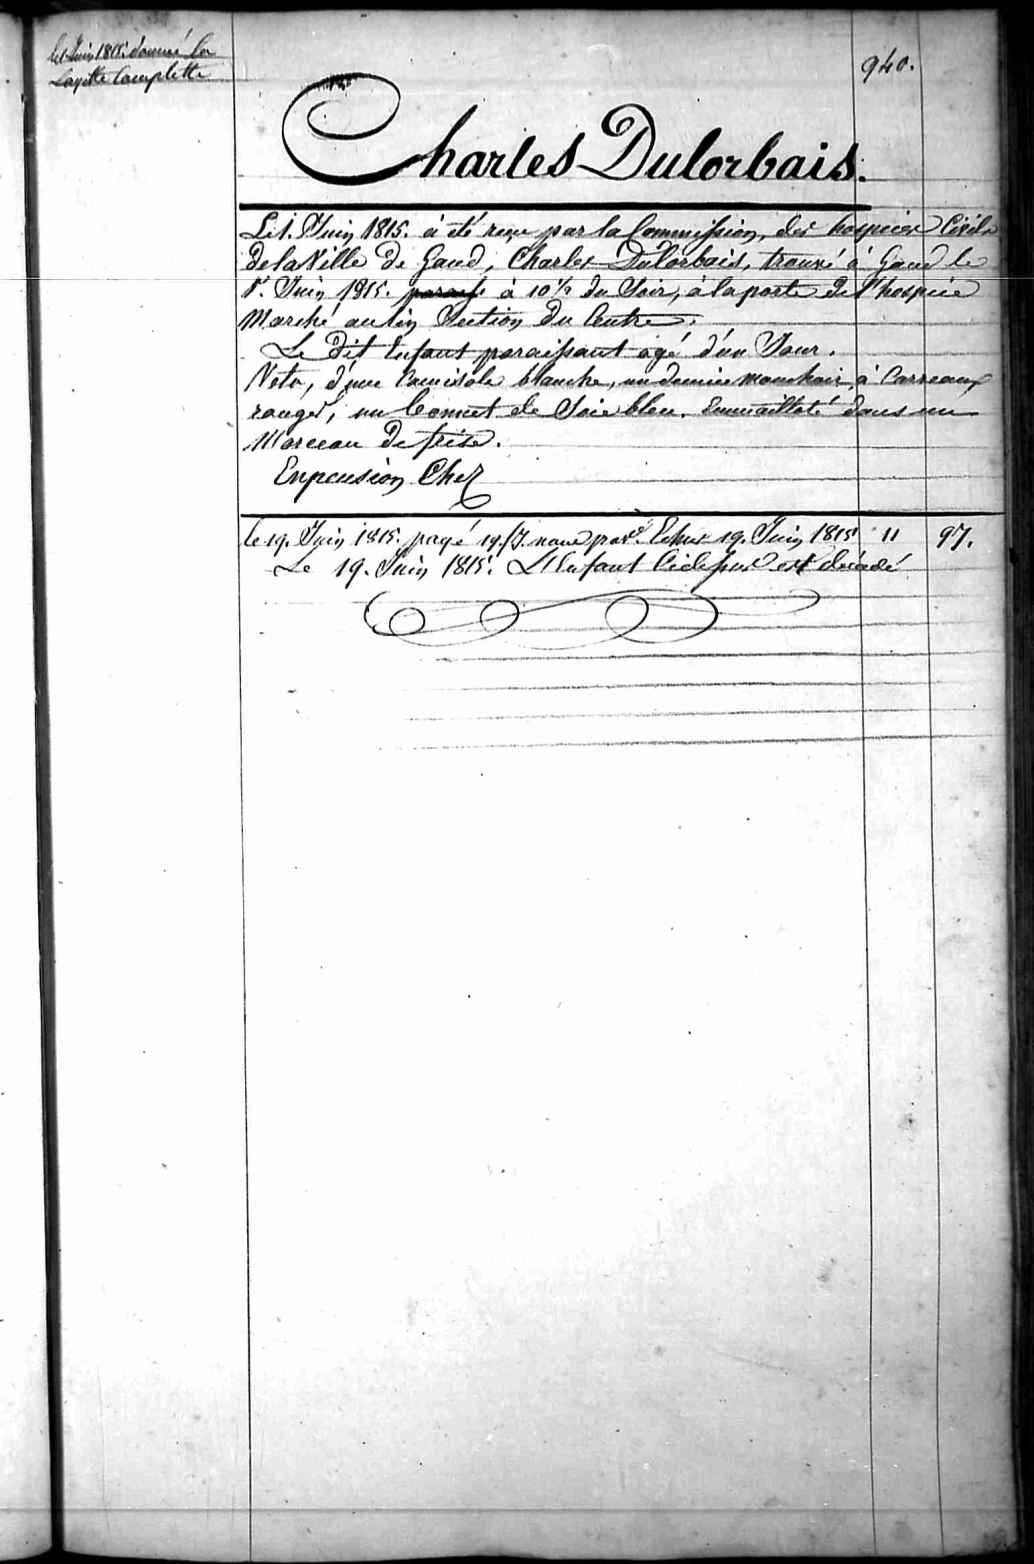 le 1 Juin 1815. donné la
Layette Complette
940.
Charles Dulorbais.
Le 1. Juin 1815. à été reçu par la Commission, des hospices Civils
de la Ville de Gand, Charles Dulorbais, trouvé à Gand le
1r. Juin 1815. à 10 ½ du Soir, à la porte de l'hospice
Marché au lin Section du Centre.
Le dit Enfant paraissant agé d'un Jour.
Vetu, d'une Camisole blanche, un demie mouchoir à Carreaux
rouges, un bonnet de Soie bleu. Emmailloté dans un
Morceau de frise.
En pension Chez
le 19. Juin 1815. payé 19. J. Echus 19. Juin 1815 11 97.
Le 19. Juin 1815. L'Enfant Cidessus est décédé